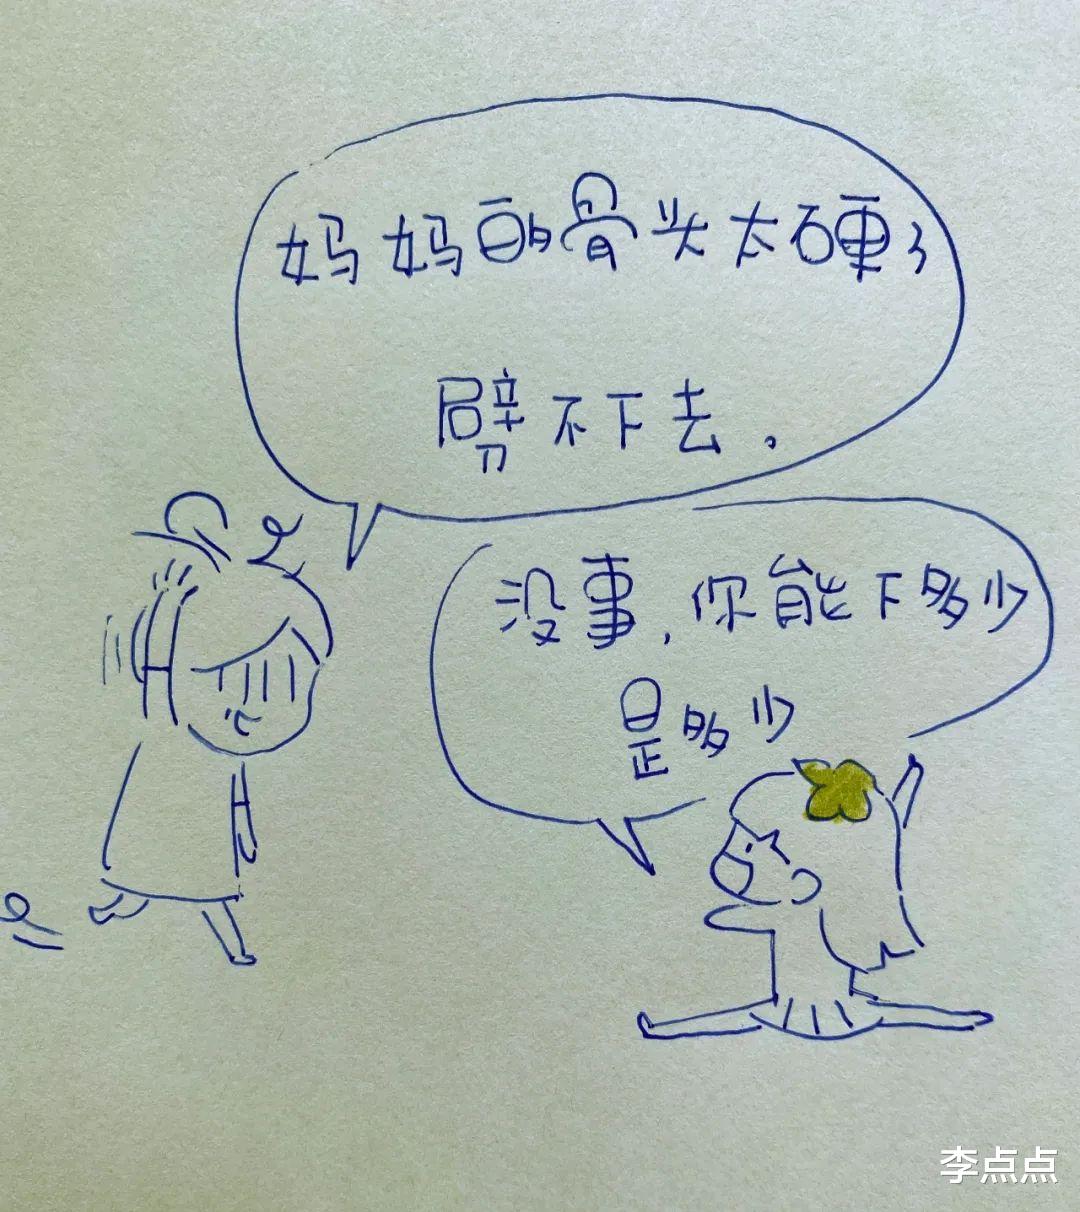 妈妈的骨头太硬了
劈不下去。
没事,你能下多少
是多少
李点点